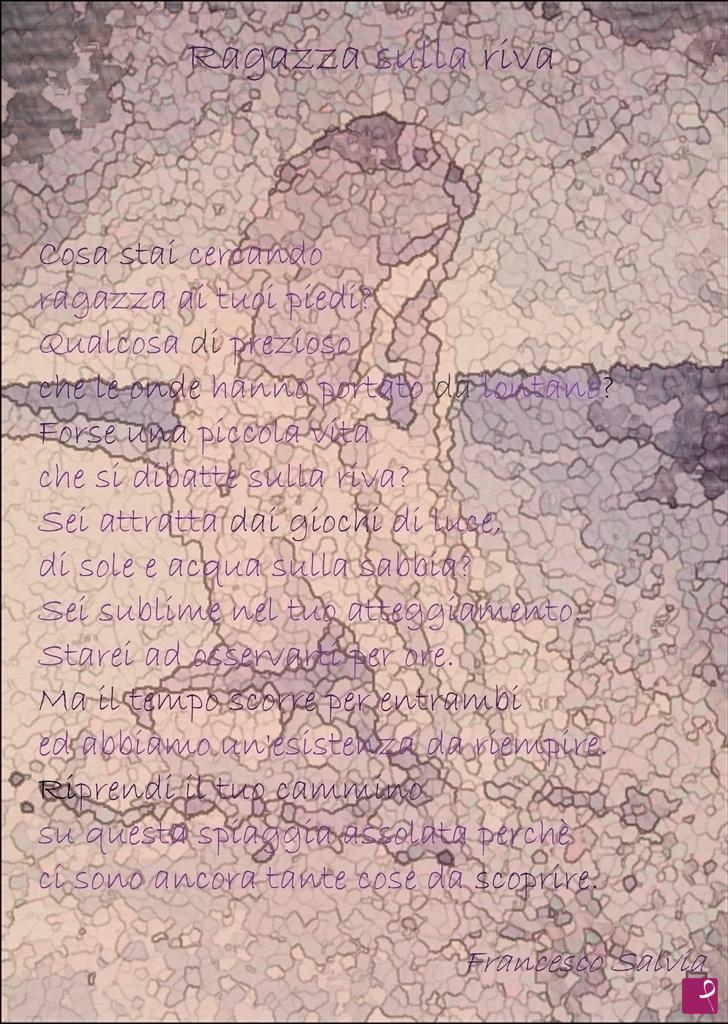 Ragazza sulla riva
Cosa stai cercando
ragazza ai tuoi piedi?
Qualcosa di prezioso
che le onde hanno portato da lontano?
Forse una piccola vita
che si dibatte sulla riva?
Sei attratta dai giochi di luce,
di sole e acqua sulla sabbia?
Sei sublime nel tuo atteggiamento.
Starei ad osservarti per ore.
Ma il tempo scorre per entrambi
ed abbiamo un'esistenza da riempire.
Riprendi il tuo cammino
su questa spiaggia assolata perchè
ci sono ancora tante cose da scoprire.
Francesco Salvia